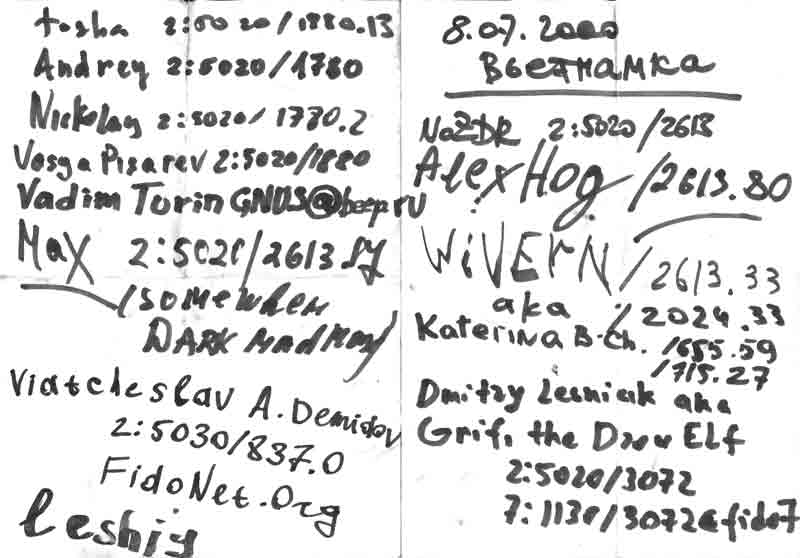 tosha 2:5020/1880.13
Andrey 2:5020/1780
Nickolay 2:5020/1780.2
Vasya Pisarev 2:5020/1880
Vadim Torin GNUS@beep.ru
Max 2:5020/2613
/somewhen
DARK MadMax/
Viatcheslav A. Demidov
2:5030/837.0
FidoNet.Org
leshiy
8.07.2000
Вьетнамка
NoZDR 2:5020/2613
AlexHog/2613.80
WiVERN/2613.33
aka /2024.33
Katerina B-Ch. /1655.59
/715.27
Dmitry Lesniak aka
Grif, the Drow Elf
2:5020/3072
7:1130/3072@fido7